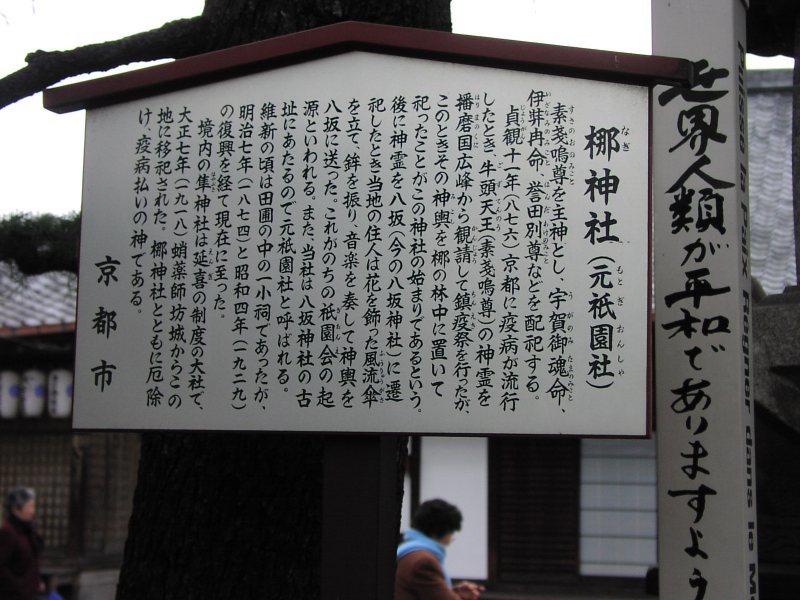 梛神社（元祇園社）
素戔嗚尊を主神とし、宇賀御魂命、
伊弉冉命、誉田別尊などを配祀する。
貞観十一年（八七六）京都に疫病が流行
したとき、牛頭天王（素戔嗚尊）の神霊を
播磨国広峰から勧請して鎮疫祭を行ったが、
このときその神輿を梛の林中に置いて
祀ったことがこの神社の始まりであるという。
後に神霊を八坂（今の八坂神社）に遷
祀したとき当地の住人は花を飾った風流傘
を立て、鉾を振り、音楽を奏して神輿を
八坂に送った。これがのちの祇園会の起
源といわれる。また、当社は八坂神社の古
址にあたるので元祇園社と呼ばれる。
維新の頃は田圃の中の一小祠であったが、
明治七年（一八七四）と昭和四年（一九二九）
の復興を経て現在に至った。
境内の隼神社は延喜の制度の大社で、
大正七年（一九一八）蛸薬師坊城からこの
地に移祀された。梛神社とともに厄除
け、疫病払いの神である。
京都市
世界人類が平和でありますよう
Puisse la Paix Régner dans le M